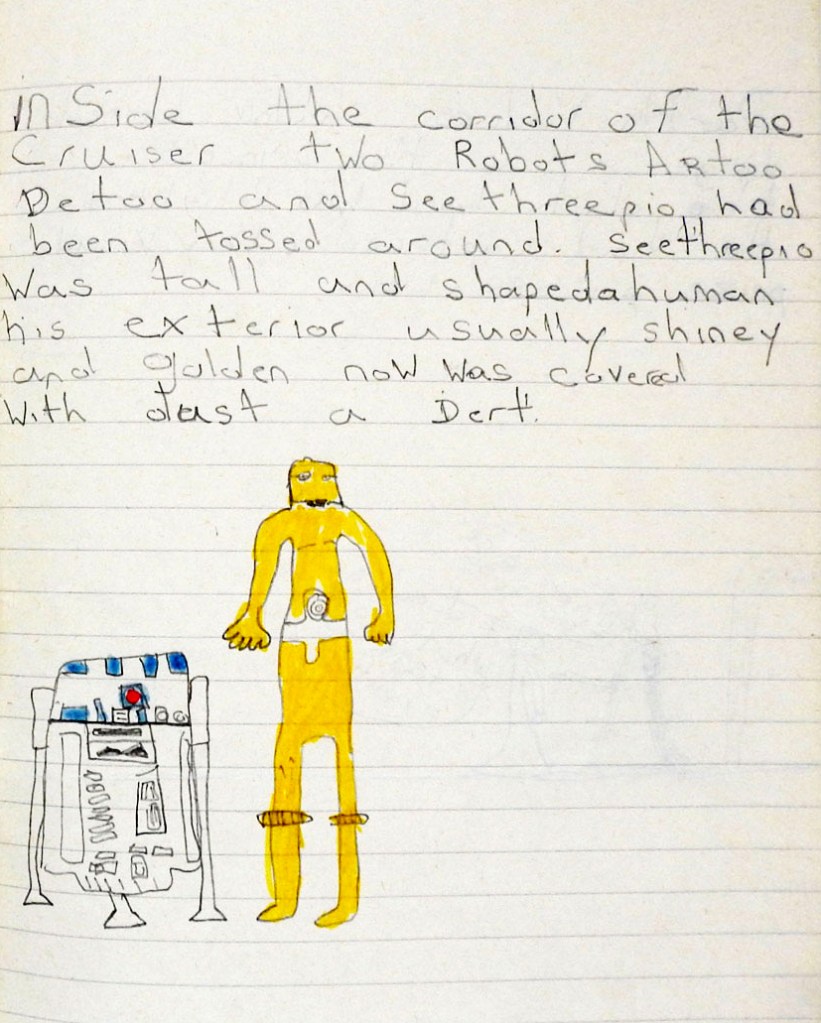 InSide the corridor of the
Cruiser two Robots Artoo
Detoo and Seethreepio had
been tossed around. Seethreepio
Was tall and shapedahuman
his exterior usually shiney
and golden now was covered
With dust a Dert.